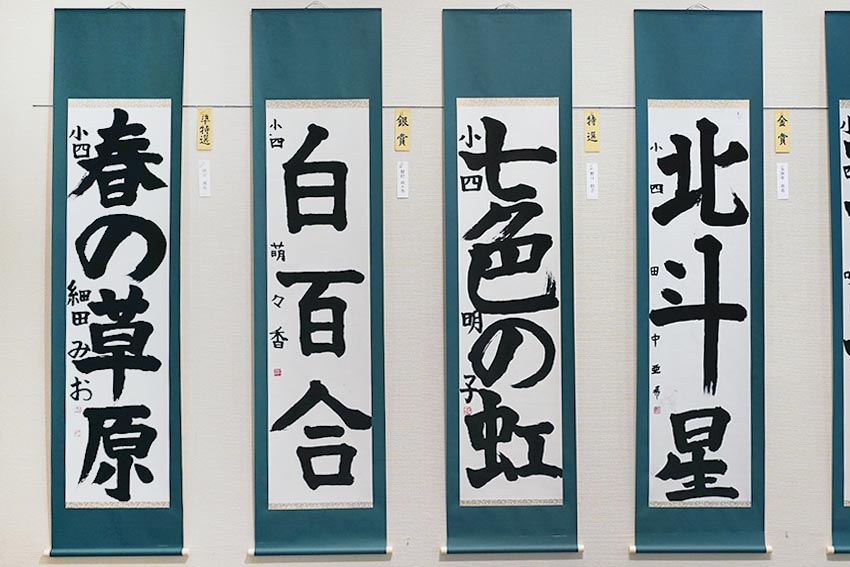 春の草原
小四
細田みお
準特選
白百合
小四
萌々香
銀賞
七色の虹
小四
明子
特選
北斗星
小四
田中亜希
金賞